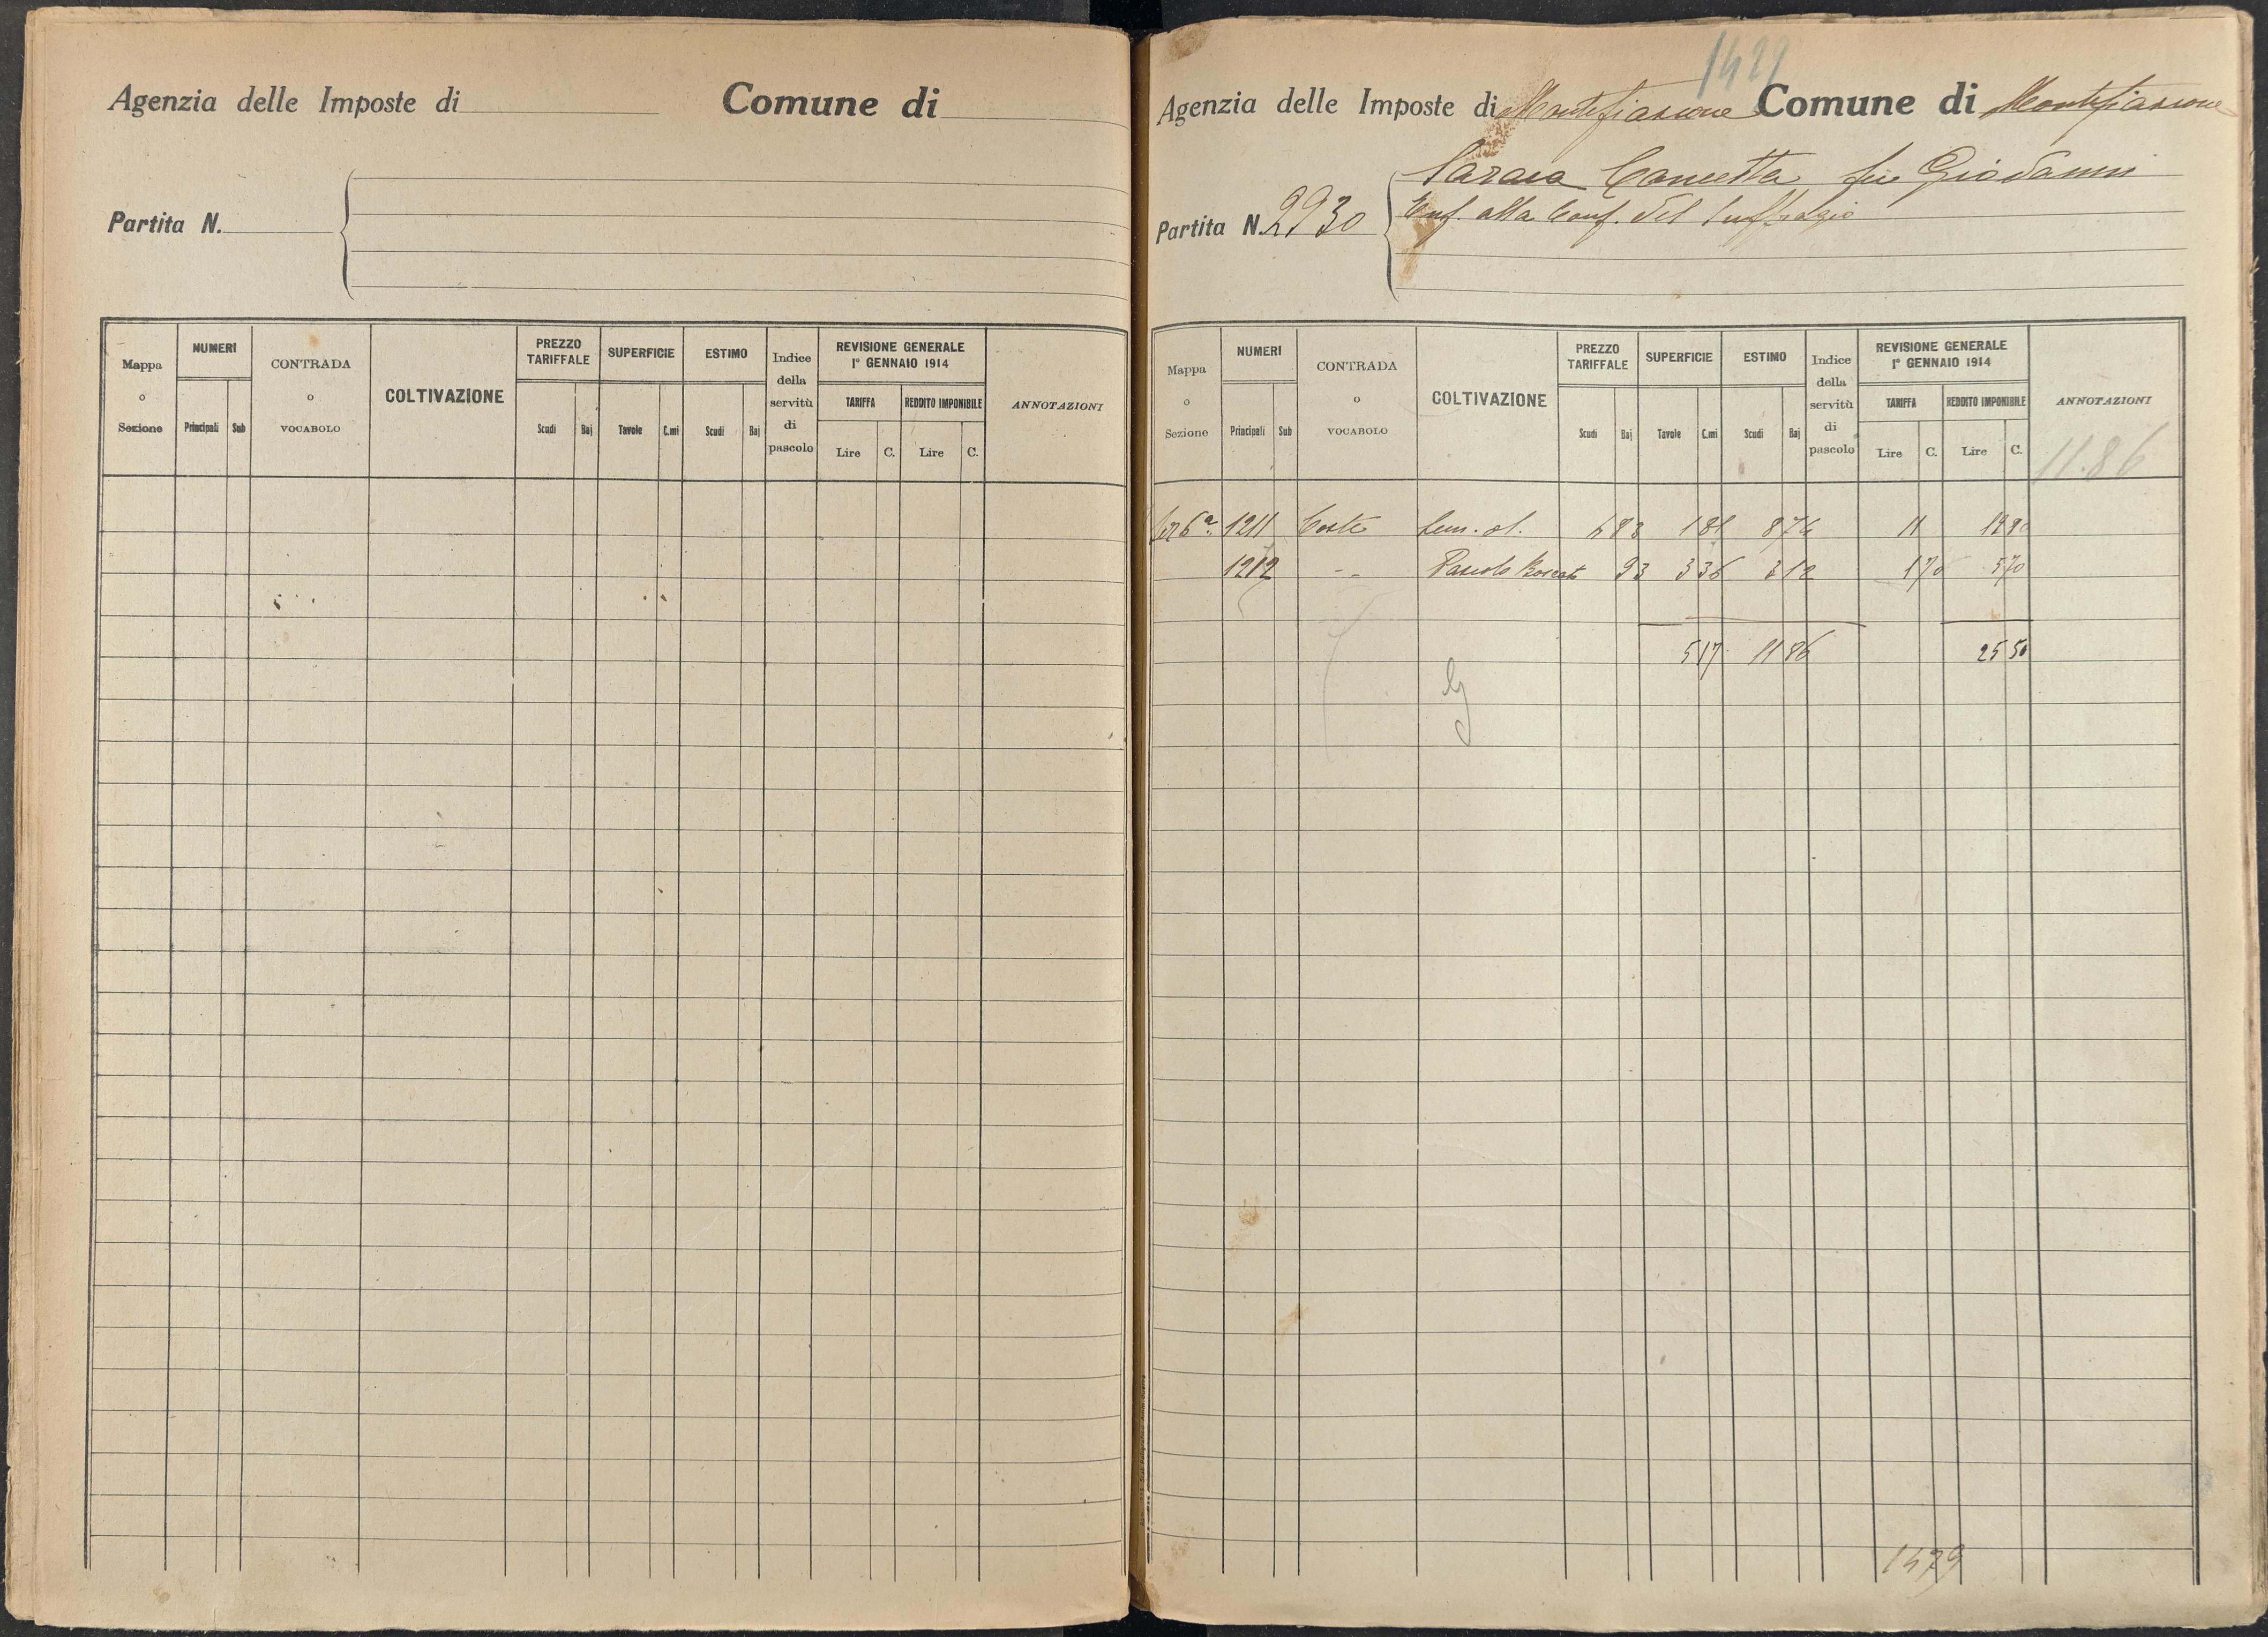 Agenzia delle Imposte di Comune di
Partita N.
Mappa o Sezione NUMERI Principali Sub CONTRADA o VOCABOLO COLTIVAZIONE PREZZO TARIFFALE Scudi Baj SUPERFICIE Tavole C.mi ESTIMO Scudi Baj Indice della servitù di pascolo REVISIONE GENERALE 1° GENNAIO 1914 TARIFFA Lire C. REDDITO IMPONIBILE Lire C. ANNOTAZIONI
Agenzia delle Imposte di Montefiascone Comune di Montefiascone
Concetta fu Giovanni
Partita N. 2930
Enf. alla Conf. del Suffragio
Mappa o Sezione NUMERI Principali Sub CONTRADA o VOCABOLO COLTIVAZIONE PREZZO TARIFFALE Scudi Baj SUPERFICIE Tavole C.mi ESTIMO Scudi Baj Indice della servitù di pascolo REVISIONE GENERALE 1° GENNAIO 1914 TARIFFA Lire C. REDDITO IMPONIBILE Lire C. ANNOTAZIONI
11.86
1211 Coste Sem. ol. 483 181 874 11 1980
1212 - - Pascolo Boscato 93 336 312 170 570
517 1186 25 50
1479